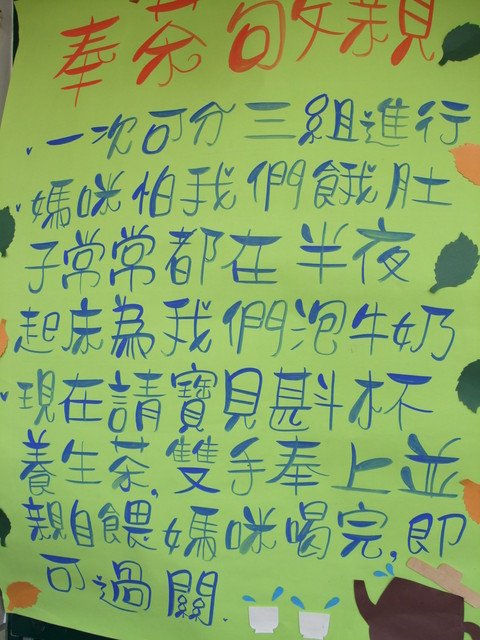 奉茶敬親
、一次可分三組進行
、媽咪怕我們餓肚
子常常都在半夜
起床為我們泡牛奶
、現在請寶貝斟杯
養生茶,雙手奉上並
親自餵媽咪喝完,即
可過關.